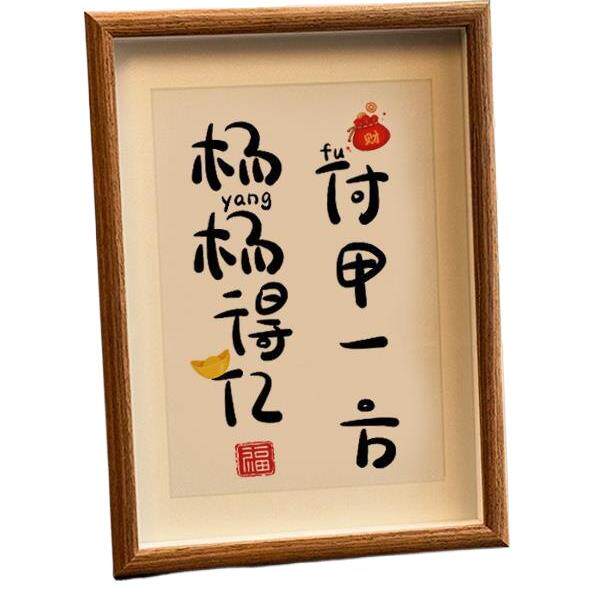 财
fu
付甲一方
yang
杨杨得亿
福